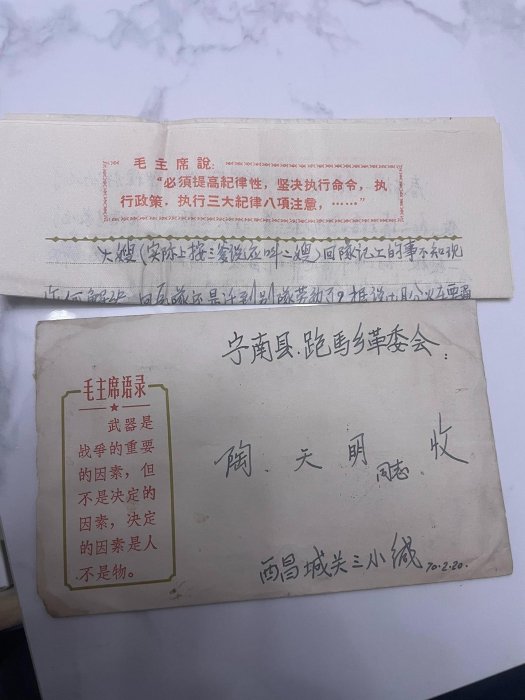 毛主席說：
“必須提高紀律性，坚决执行命令，执
行政策，执行三大紀律八項注意，……”
大嫂（实际上按三爹说应叫二嫂）回隊记工的事不知现
宁南县.跑馬乡革委会：
毛主席语录
武器是
战爭的重要
的因素，但
不是决定的
因素，决定
的因素是人
不是物。
陶 天 明 同志 收
西昌城关三小缄 70.2.20.